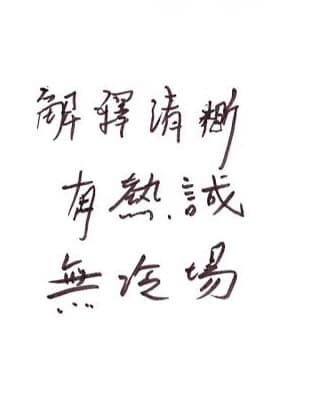 解釋清晰
有熱誠
無冷場